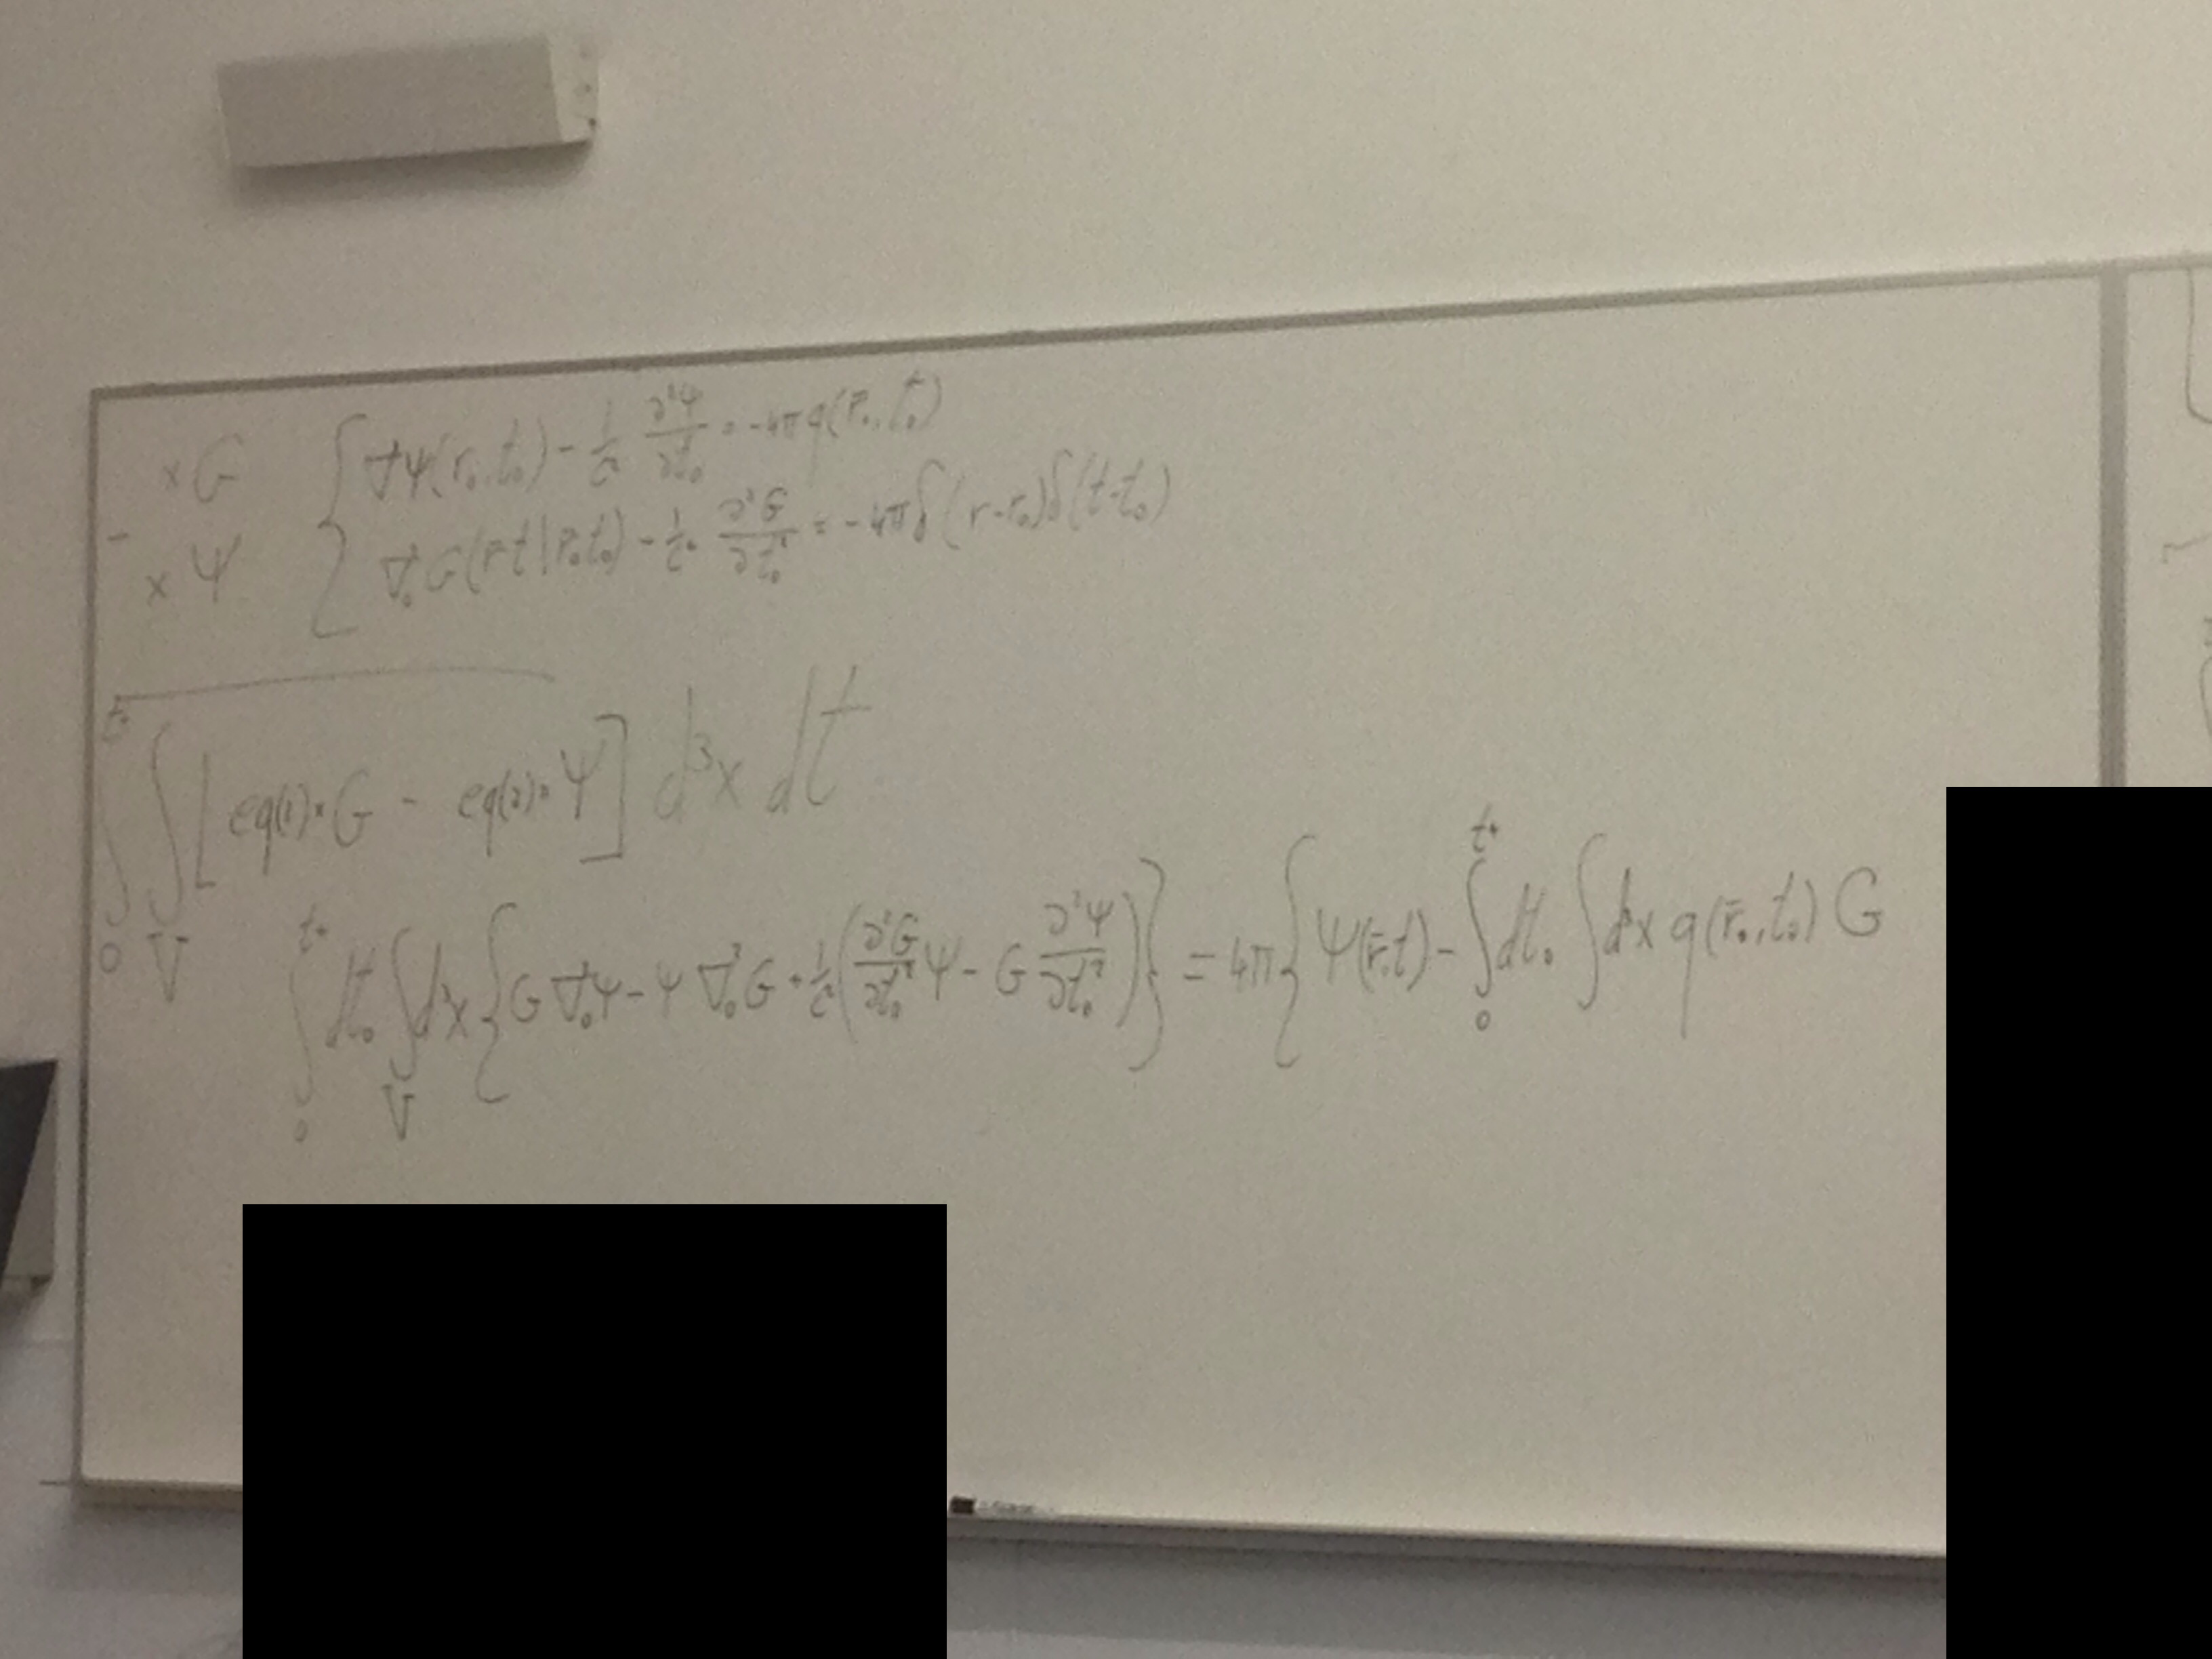 × G { ∇²ψ(r₀,t₀) - 1/c² ∂²ψ/∂t₀² = -4π q(r̄₀,t₀)
- × Ψ ∇₀²G(r̄t|r̄₀t₀) - 1/c² ∂²G/∂t₀² = -4πδ(r-r₀)δ(t-t₀)
∫₀^{t₊} ∫_V [eq(1)·G - eq(2)·Ψ] d³x dt
∫₀^{t₊} dt₀ ∫_V d³x {G ∇₀²ψ - ψ ∇₀²G + 1/c² (∂²G/∂t₀² ψ - G ∂²ψ/∂t₀²)} = 4π {Ψ(r̄,t) - ∫₀^{t₊} dt₀ ∫d³x q(r̄₀,t₀) G